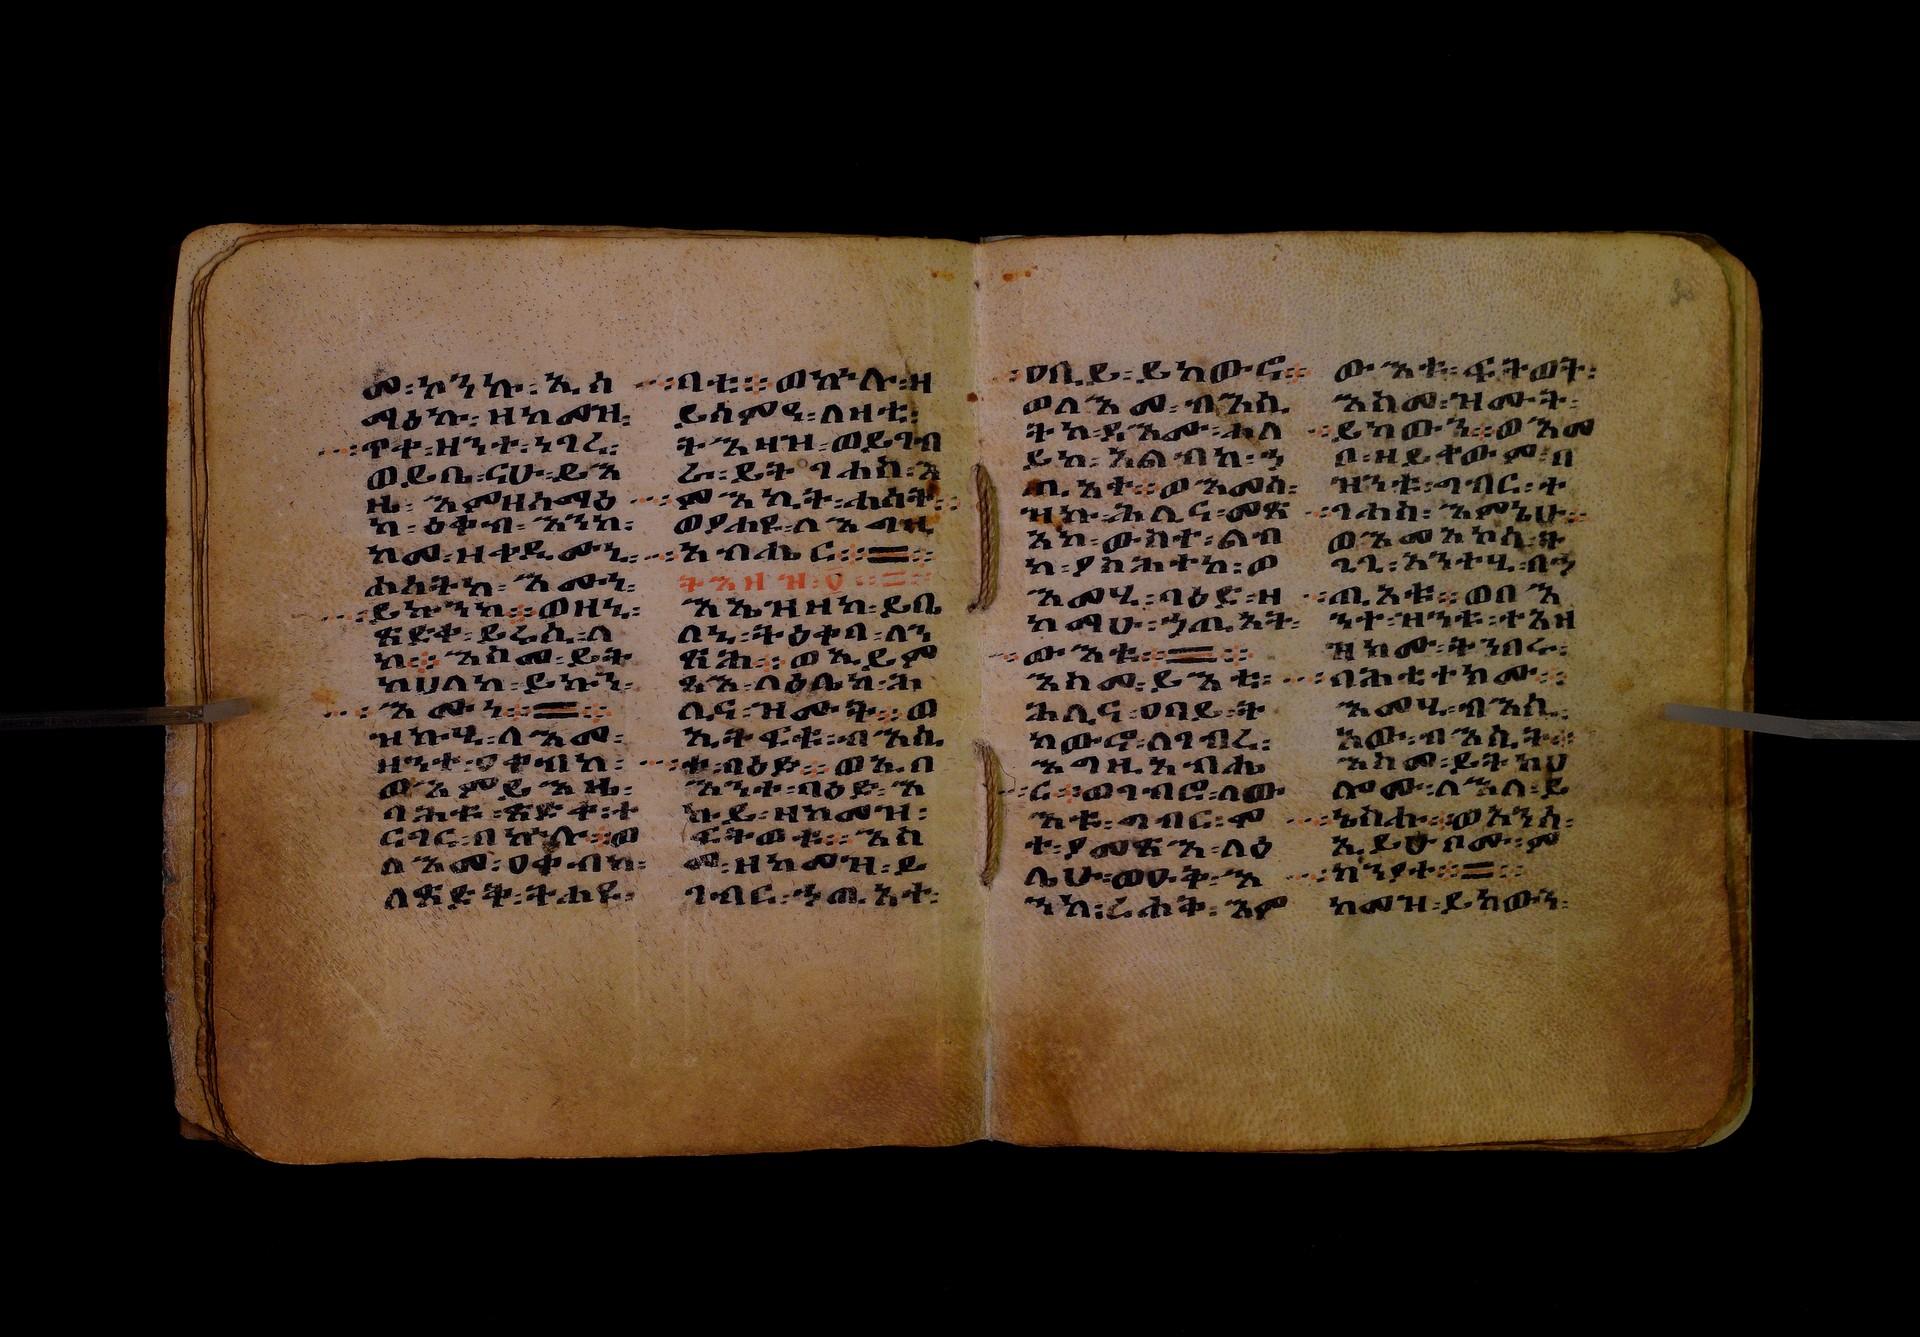 መ፡ ኮንኩ፡ ኢስ
ማዕኩ፡ ዘከመዝ፡
ጥተ፡ ዘንተ፡ ነገረ፡
ወይቤ፡ ናሁ፡ ይእ
ዜ፡ እምዘሰማዕ
ከ፡ ዕቀብ፡ እንከ፡
ከመ፡ ዘቀደሙኒ፡
ሐሰትከ፡ እሙነ፡
ይኩንከ፡ ወዘኒ፡
ጸድቀ፡ ይሬሲ፡ ለ
ከ፡ እስመ፡ ይት
ከሀለከ፡ ይኩን፡
እሙነ፡
ዝኩሂ፡ ለእመ፡
ዘንተ፡ ዐቀብከ፡
ወእምይእዜ፡
በሕቱ፡ ጽድቀ፡ ተ
ናገር፡ በኵሉ፡ ወ
ለእመ፡ ዐቀብከ፡
ለጽድቅ፡ ትሐዩ፡
ቦቱ፡ ወኵሉ፡ ዘ
ይሰምዓ፡ ለዛቲ፡
ትእዛዝ፡ ወይገብ
ራ፡ ይት ገሐሰ፡ እ
ምእኪት፡ ሐሰት፡
ወያሐዩ፡ ለእግዚ
አብሔር፡
ትእዛዝ፡ ፬
እኤዝዘከ፡ ይቤ
ለኒ፡ ትዕቀባ፡ ለን
ጽሕ፡ ወኢይም
ጻእ፡ ለዕሌከ፡ ሕ
ሊና፡ ዝሙት፡ ወ
ኢትፍቱ፡ ብእሲ
ተ፡ ባዕድ፡ ወኢበ
እንተ፡ ባዕድ፡ እ
ኩይ፡ ዘከመዝ፡
ፍትወቱ፡ እስ
መ፡ ዘከመዝ፡ ይ
ገብር፡ ኃጢአተ፡
ዐቢይ፡ ይከውር፡
ወለእመ፡ ብእሲ
ትከ፡ ዳእሙ፡ ሐለ
ይከ፡ አልብከ፡ ኃ
ጢአተ፡ ወእመሰ፡
ዝኩ፡ ሕሊና፡ መጽ
አከ፡ ውስተ፡ ልብ
ከ፡ ያስሕተከ፡ ወ
እመሂ፡ ባዕድ፡ ዘ
ከማሁ፡ ኃጢአት፡
ውእቱ፡
እስመ፡ ይእቲ፡
ሕሊና፡ ዐባይ፡ ት
ከውኖ፡ ለገብረ፡
እግዚአብሔ
ር፡ ወገብሮ፡ ለው
እቱ፡ ግብር፡ ሞ
ተ፡ ያመጽእ፡ ለዕ
ሌሁ፡ ወዑቅ፡ እ
ንከ፡ ረሐቅ፡ እም
ውእቱ፡ ፍትወት፡
እስመ፡ ዝሙት፡
ይከውን፡ ወእመ
ቦ፡ ዘይቀውም፡ በ
ዝንቱ፡ ግብር፡ ተ
ገሐስ፡ እምኔሁ፡
ወእመአኮሰ፡ ት
ጌጊ፡ አንተሂ፡ በኃ
ጢአቱ፡ ወበእ
ንተ፡ ዝንቱ፡ ተአዘ
ዝከመ፡ ትንበሩ፡
በሕቲተክሙ፡
እመሂ፡ ብእሲ፡
አው፡ ብእሲት፡
እስመ፡ ይትከሀ
ሎሙ፡ ለእለ፡ ይ
ኔስሑ፡ ወአንሰ፡
ኢይሁቦሙ፡ ም
ክንያተ፡
ከመዝ፡ ይከውን፡